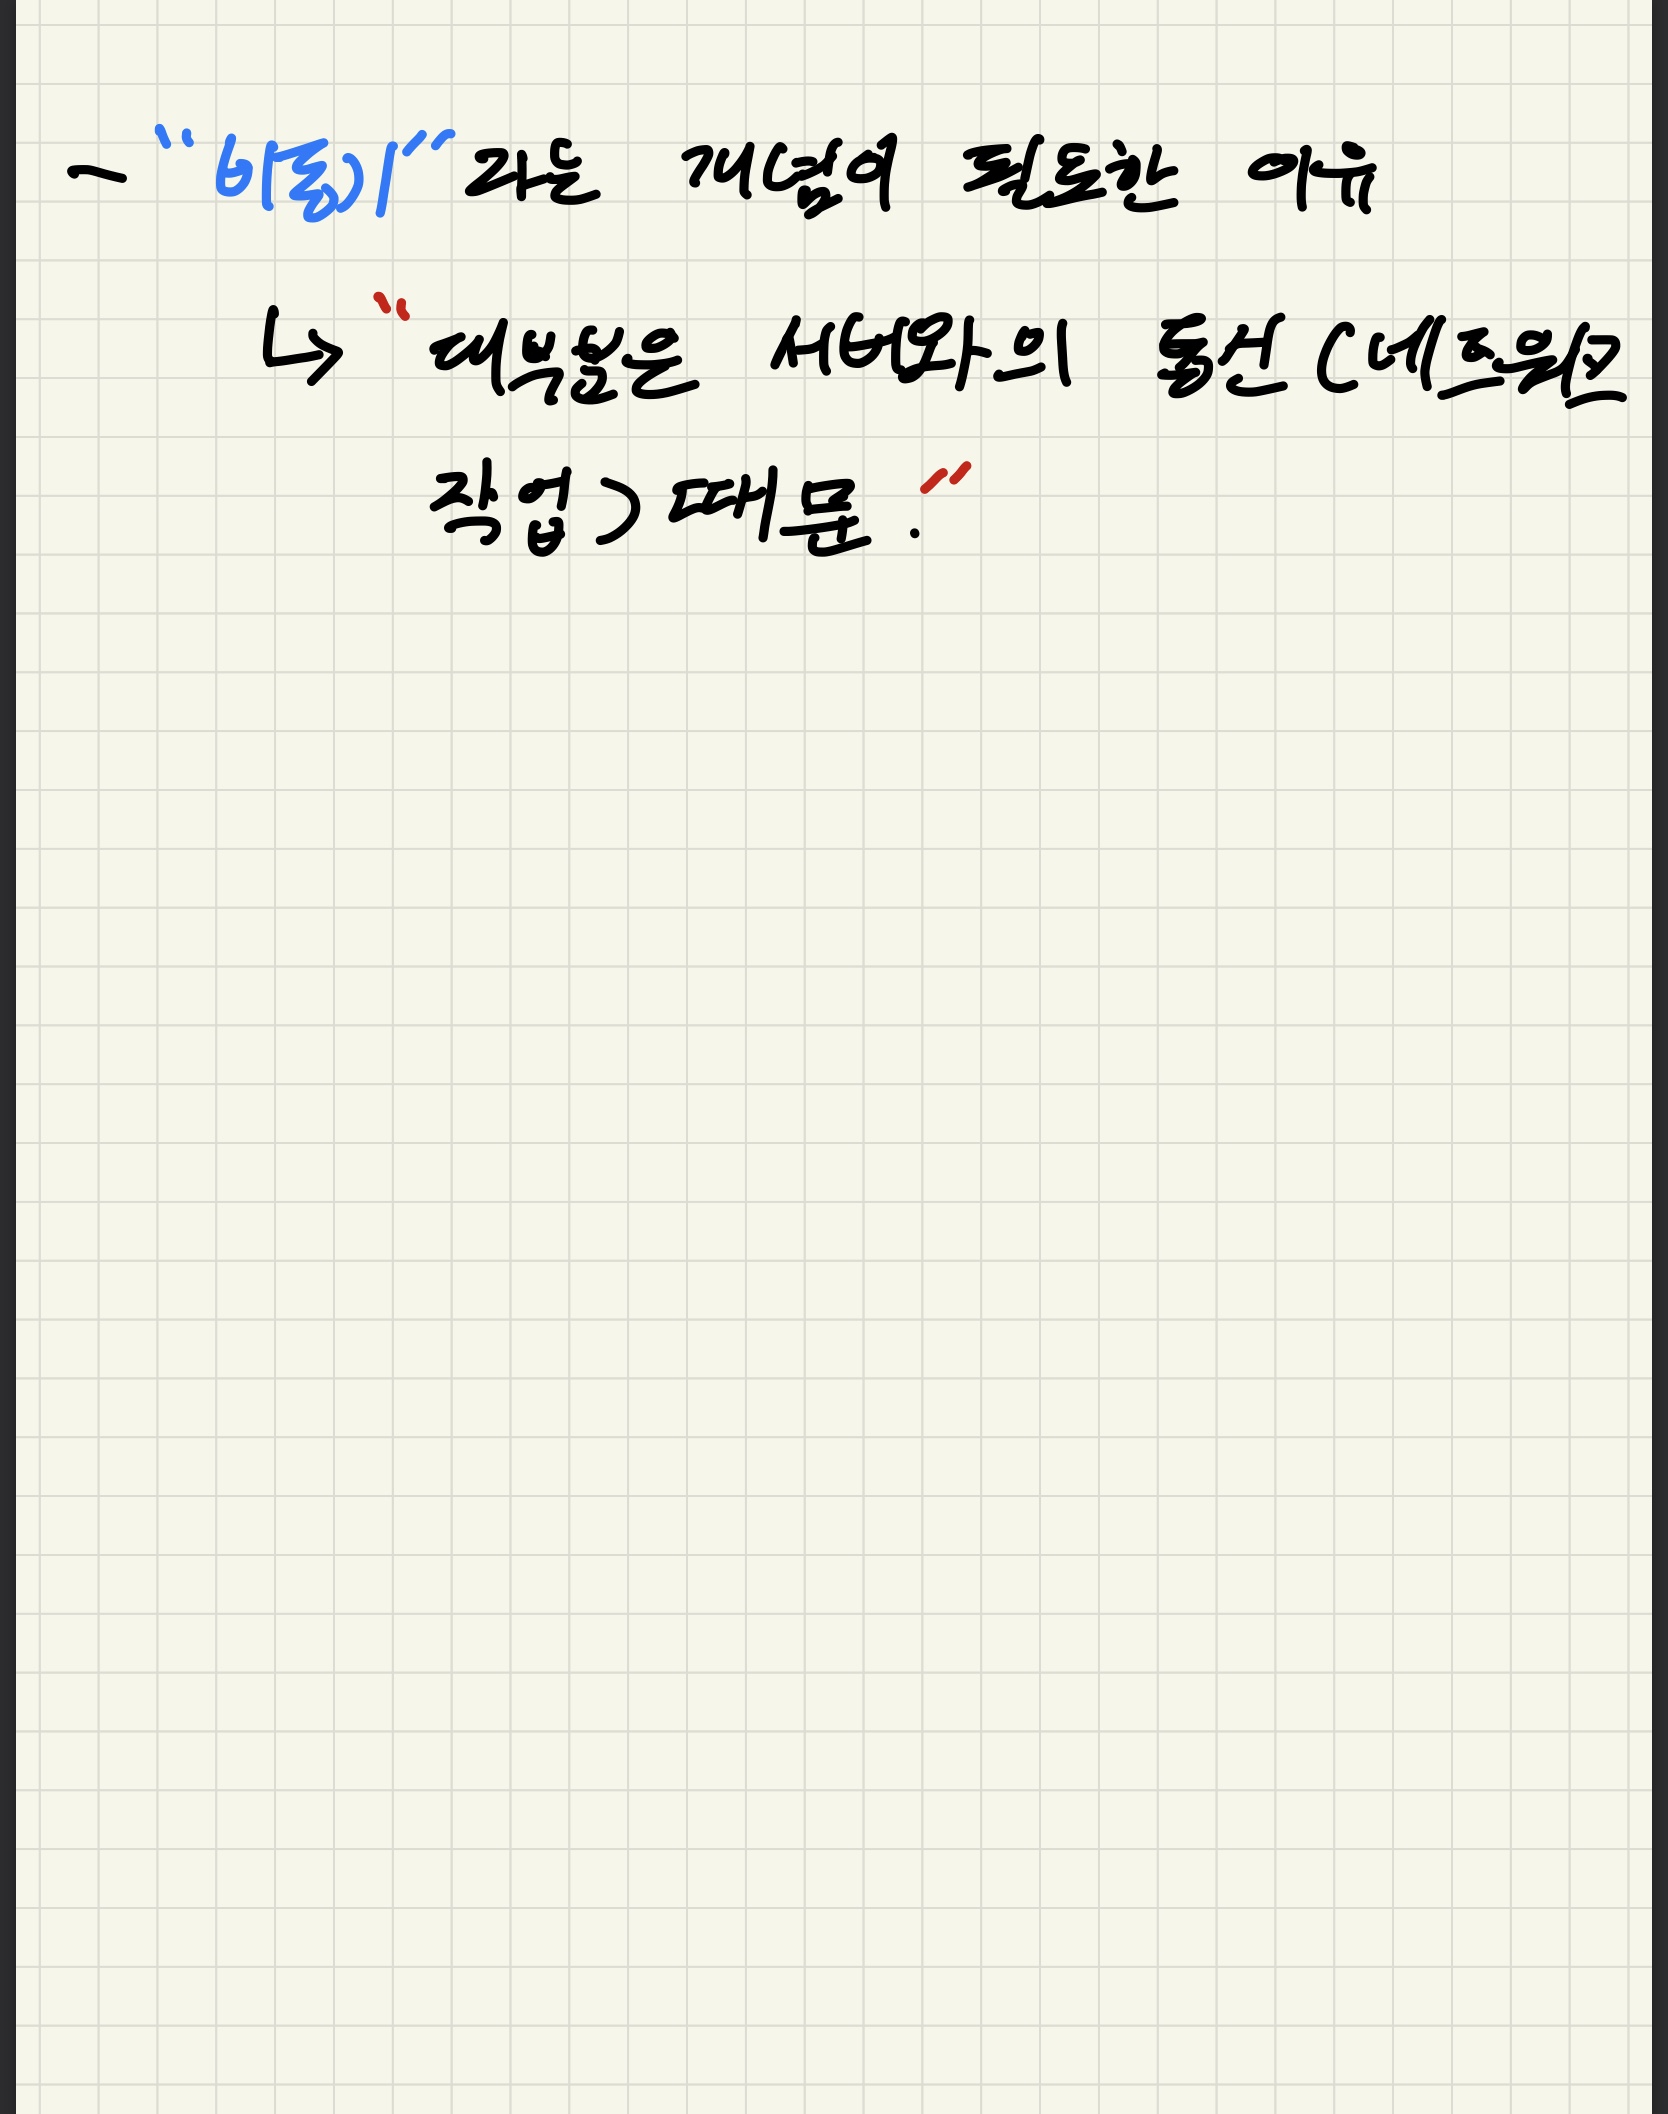 - "비동기"라는 개념이 필요한 이유
↳ "대부분은 서버와의 통신 (네트워크
작업) 때문."